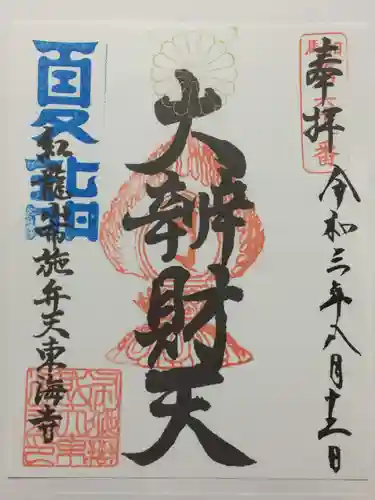 奉拝
令和三年八月十二日
大辨財天
夏詣
紅龍山布施弁天東海寺